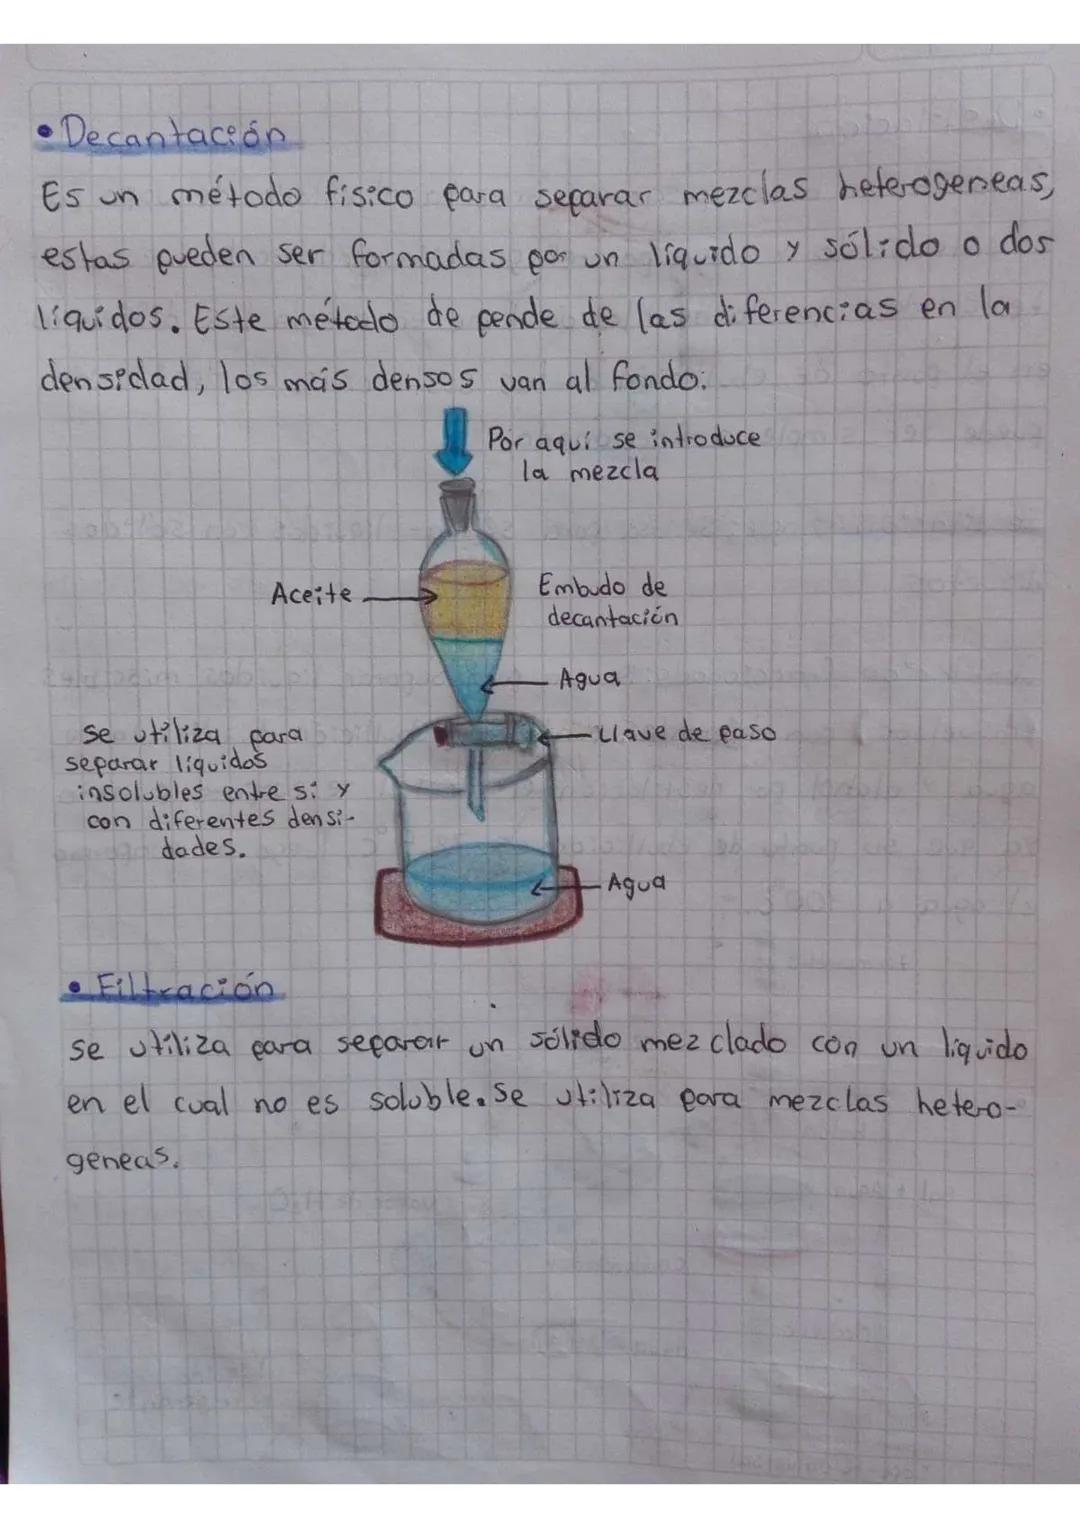 • Decantación
Es un método físico para separar mezclas heterogeneas,
estas pueden ser formadas por un líquido y sólido o dos
líquidos. Este método de pende de las diferencias en la
densidad, los más densos van al fondo.
Por aquí se introduce
la mezcla
Aceite
Embudo de
decantación
Agua
Llave de paso
se utiliza para
separar líquidos
insolubles entre sí y
con diferentes densi-
dades.
Agua
• Filtración
se utiliza para separar un sólido mezclado con un líquido
en el cual no es soluble. Se utiliza para mezclas hetero-
geneas.